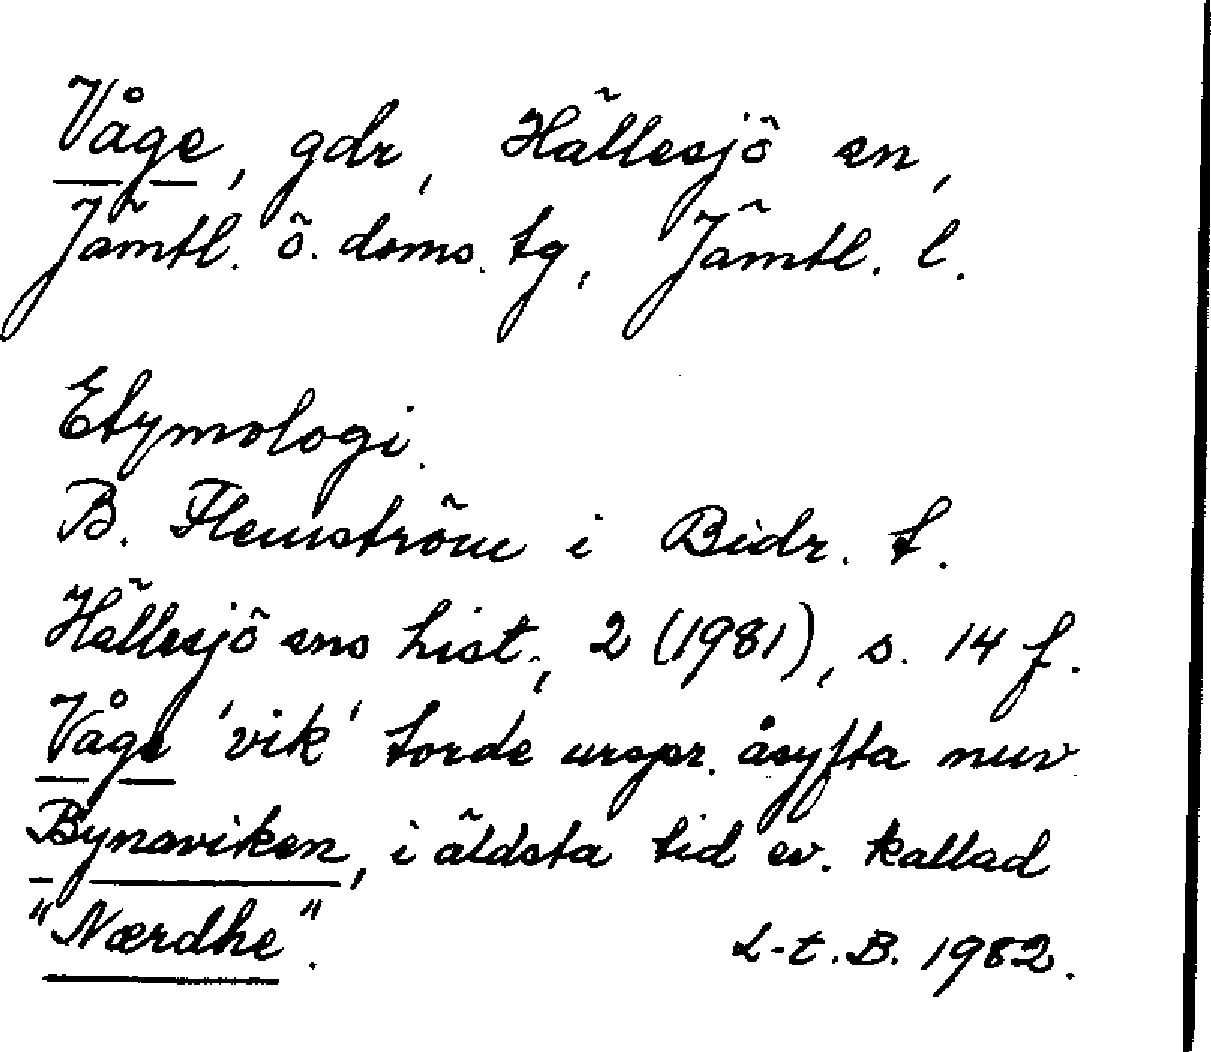 Våge, gdr, Hällesjö sn,
Jämtl. ö. doms. tg, Jämtl. l.
Etymologi.
B. Flemström i Bidr. t.
Hällesjö sns hist., 2 (1981), s. 14 f.
Våge 'vik' torde urspr. åsyfta nuv.
Bynaviken, i äldsta tid ev. kallad
"Nærdhe".
L-t. B. 1982.